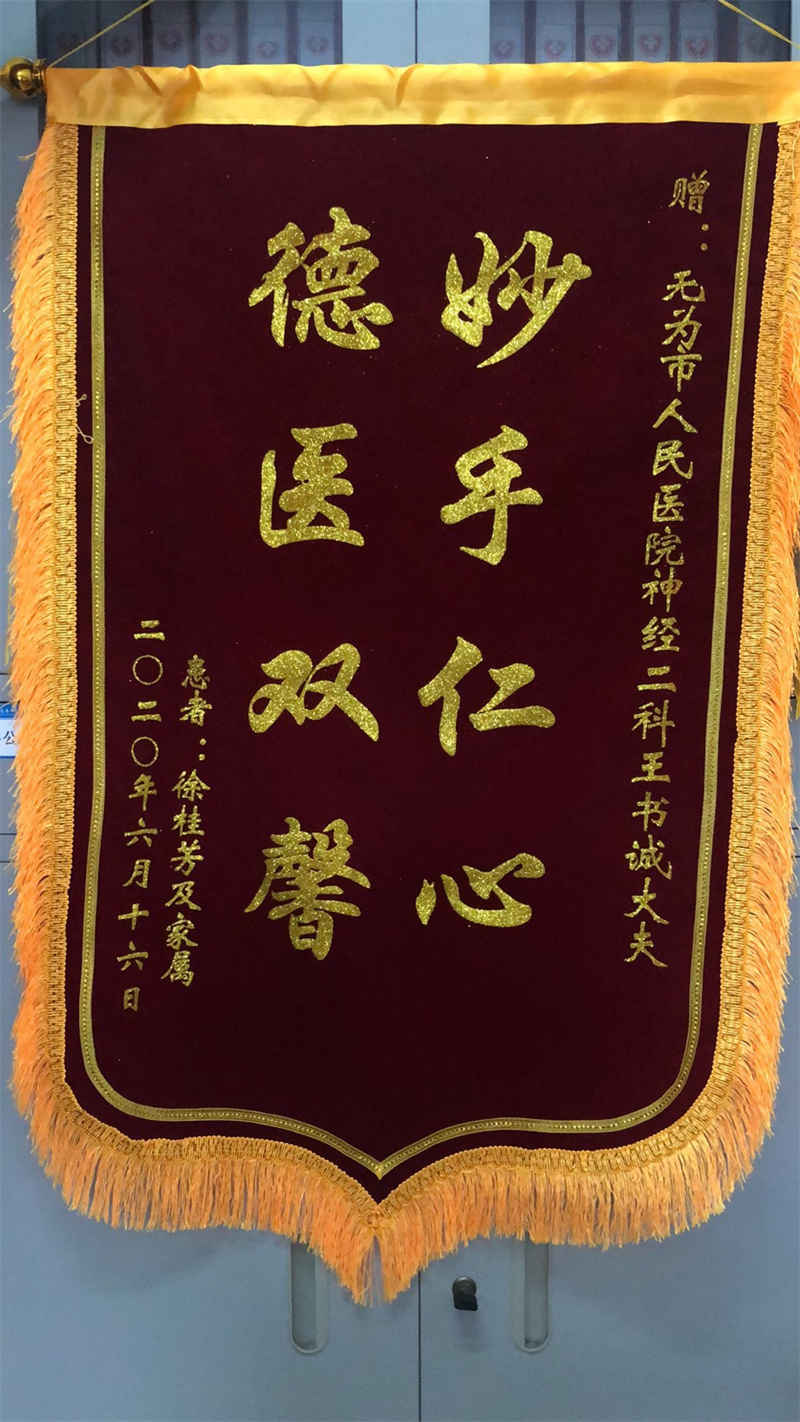 赠：无为市人民医院神经二科王书诚大夫
妙手仁心
德医双馨
患者：徐桂芳及家属
二〇二〇年六月十六日
公